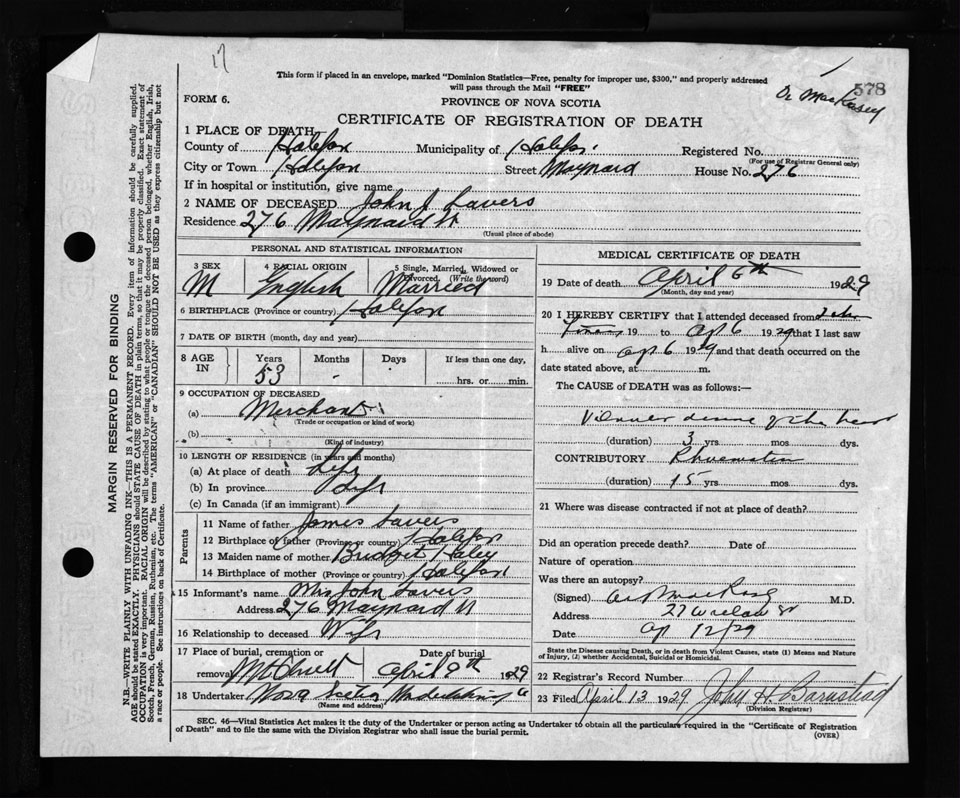 17
This form if placed in an envelope, marked "Dominion Statistics—Free, penalty for improper use, $300," and properly addressed
will pass through the Mail "FREE"
578
FORM 6.
PROVINCE OF NOVA SCOTIA
CERTIFICATE OF REGISTRATION OF DEATH
1 PLACE OF DEATH
County of Halifax Municipality of Halifax Registered No.
(For use of Registrar General only)
City or Town Halifax Street Maynard House No. 276
If in hospital or institution, give name
2 NAME OF DECEASED John J Lavers
Residence 276 Maynard St
(Usual place of abode)
PERSONAL AND STATISTICAL INFORMATION
3 SEX M
4 RACIAL ORIGIN English
5 Single, Married, Widowed or Divorced. (Write the word) Married
6 BIRTHPLACE (Province or country) Halifax
7 DATE OF BIRTH (month, day and year)
8 AGE IN Years 53 Months - Days If less than one day, hrs. or min.
9 OCCUPATION OF DECEASED
(a) Merchant
(Trade or occupation or kind of work)
(b)
(Kind of industry)
10 LENGTH OF RESIDENCE (in years and months)
(a) At place of death Life
(b) In province Life
(c) In Canada (if an immigrant)
Parents
11 Name of father James Lavers
12 Birthplace of father (Province or country) Halifax
13 Maiden name of mother Bridget Haley
14 Birthplace of mother (Province or country) Halifax
15 Informant's name Mrs John Lavers
Address 276 Maynard St
16 Relationship to deceased Wife
17 Place of burial, cremation or removal Mt Olivet Date of burial April 9th 1929
18 Undertaker Nova Scotia Undertaking Co
(Name and address)
MEDICAL CERTIFICATE OF DEATH
19 Date of death April 6th 1929
(Month, day and year)
20 I HEREBY CERTIFY that I attended deceased from
19 to Ap 6 1929 that I last saw
h alive on Ap 6 1929 and that death occurred on the
date stated above, at m.
The CAUSE OF DEATH was as follows:—
disease of the heart
(duration) 3 yrs mos dys.
CONTRIBUTORY Rheumatism
(duration) 15 yrs mos dys.
21 Where was disease contracted if not at place of death?
Did an operation precede death? Date of
Nature of operation
Was there an autopsy?
(Signed) M.D.
Address 27
Date Ap 12/29
State the Disease causing Death, or in death from Violent Causes, state (1) Means and Nature
of Injury, (2) whether Accidental, Suicidal or Homicidal.
22 Registrar's Record Number
23 Filed April 13 1929 John H Barnstead
(Division Registrar)
SEC. 46—Vital Statistics Act makes it the duty of the Undertaker or person acting as Undertaker to obtain all the particulars required in the "Certificate of Registration
of Death" and to file the same with the Division Registrar who shall issue the burial permit.
(OVER)
MARGIN RESERVED FOR BINDING
N.B.—WRITE PLAINLY WITH UNFADING INK—THIS IS A PERMANENT RECORD. Every item of information should be carefully supplied.
AGE should be stated EXACTLY. PHYSICIANS should STATE CAUSE OF DEATH in plain terms, so that it may be properly classified. Exact statement of
OCCUPATION is very important. RACIAL ORIGIN will be described by stating to what people or tongue the deceased person belonged, whether English, Irish,
Scotch, French, German, Russian, Ruthenian, etc. The terms "AMERICAN" or "CANADIAN" SHOULD NOT BE USED as they express citizenship but not
a race or people. See instructions on back of Certificate.